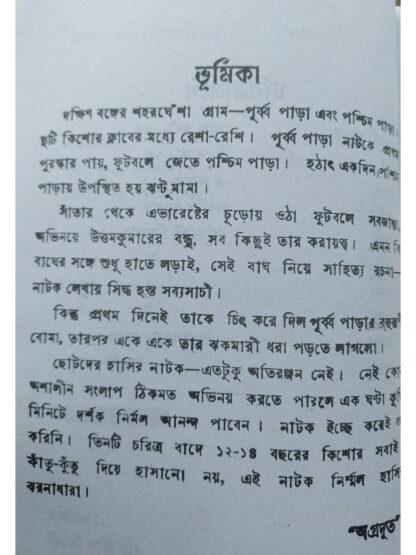 ভূমিকা
দক্ষিণ বঙ্গের শহরঘেঁষা গ্রাম—পূর্ব্ব পাড়া এবং পশ্চিম পাড়া।
দুটি কিশোর ক্লাবের মধ্যে রেশা-রেশি। পূর্ব্ব পাড়া নাটকে প্রথম
পুরস্কার পায়, ফুটবলে জেতে পশ্চিম পাড়া। হঠাৎ একদিন পশ্চিম
পাড়ায় উপস্থিত হয় ঝন্টুমামা।
সাঁতার থেকে এভারেষ্টের চুড়োয় ওঠা ফুটবলে সবজান্তা,
অভিনয়ে উত্তমকুমারের বন্ধু, সব কিছুই তার করায়ত্ব। এমন কি
বাঘের সঙ্গে শুধু হাতে লড়াই, সেই বাঘ নিয়ে সাহিত্য রচনা—
নাটক লেখায় সিদ্ধ হস্ত সব্যসাচী।
কিন্তু প্রথম দিনেই তাকে চিৎ করে দিল পূর্ব্ব পাড়ার
বোমা, তারপর একে একে তার ঝকমারী ধরা পড়তে লাগলো।
ছোটদের হাসির নাটক—এতটুকু অতিরঞ্জন নেই। নেই কোন
অশালীন সংলাপ ঠিকমত অভিনয় করতে পারলে এক ঘণ্টা
মিনিটে দর্শক নির্মল আনন্দ পাবেন। নাটক ইচ্ছে করেই
করিনি। তিনটি চরিত্র বাদে ১২-১৪ বছরের কিশোর সবাই
কাঁতু-কুঁতু দিয়ে হাসানো নয়, এই নাটক নির্ম্মল হাসির
ঝরনাধারা।
"অগ্রদূত"